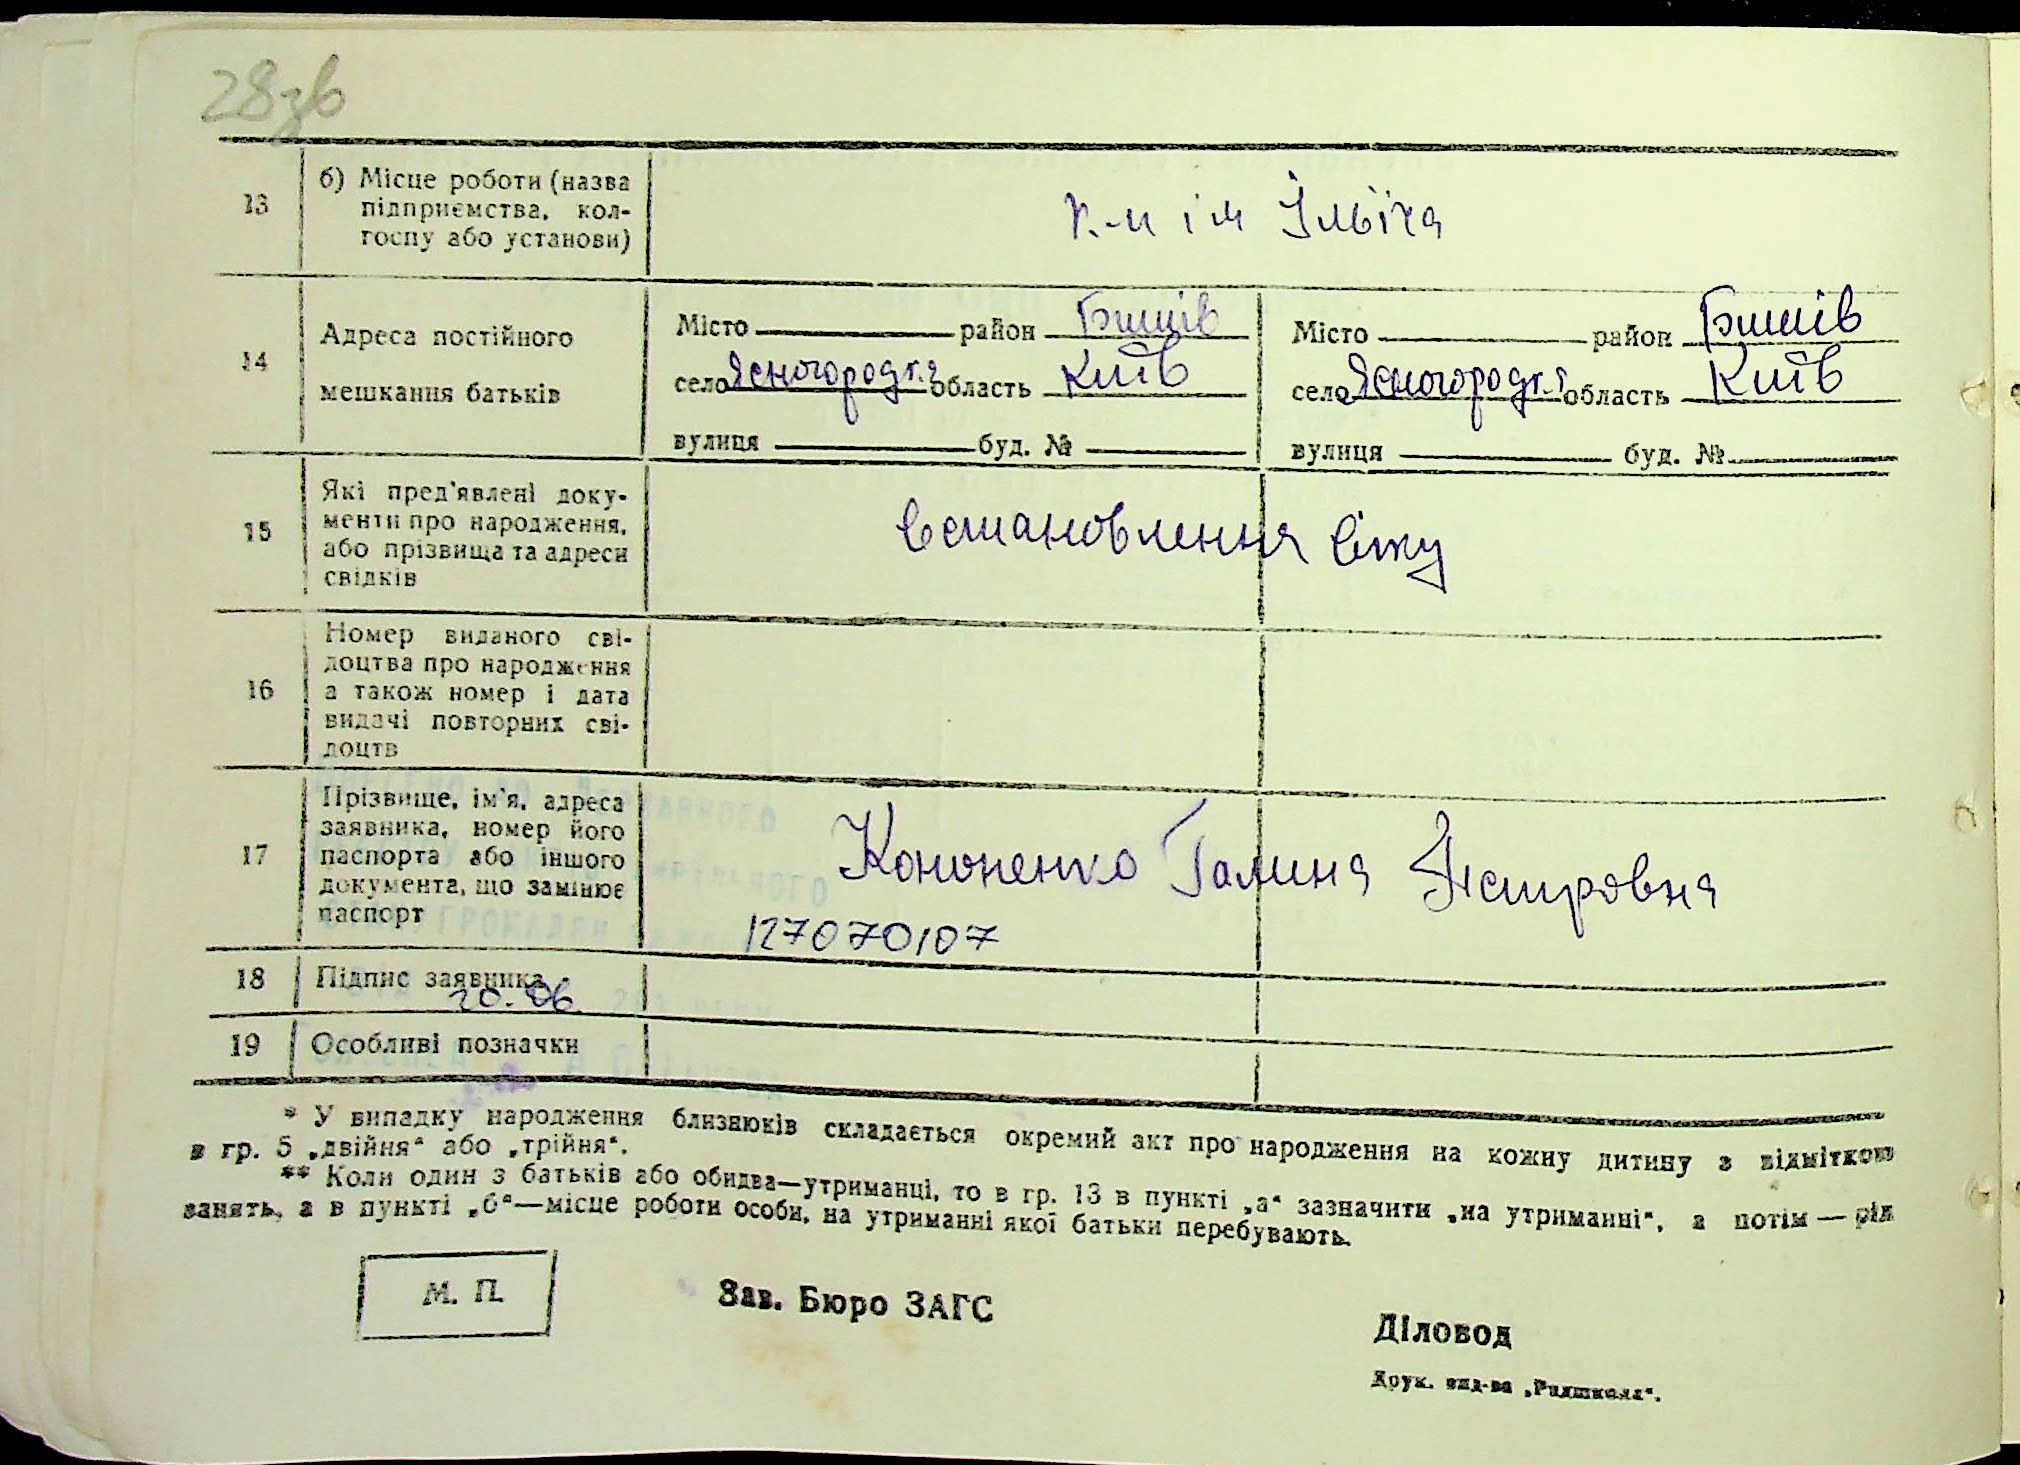 28зв
13
б) Місце роботи (назва
підприємства, кол-
госпу або установи)
к-п ім Ілліча
14
Адреса постійного
мешкання батьків
Місто район Бишів
село Ясногородка область Київ
вулиця буд. №
Місто район Бишів
село Ясногородка область Київ
вулиця буд. №
15
Які пред'явлені доку-
менти про народження,
або прізвища та адреси
свідків
встановлення віку
16
Номер виданого сві-
доцтва про народження
а також номер і дата
видачі повторних сві-
доцтв
17
Прізвище, ім'я, адреса
заявника, номер його
паспорта або іншого
документа, що замінює
паспорт
Кононенко Галина Петровна
127070107
18
Підпис заявника
20.06
19
Особливі позначки
* У випадку народження близнюків складається окремий акт про народження на кожну дитину з відміткою
в гр. 5 „двійня“ або „трійня“.
** Коли один з батьків або обидва—утриманці, то в гр. 13 в пункті „а“ зазначити „на утриманні“, а потім — рід
занять, а в пункті „б“—місце роботи особи, на утриманні якої батьки перебувають.
М. П.
Зав. Бюро ЗАГС
Діловод
Друк. вид-ва „Радшкола“.